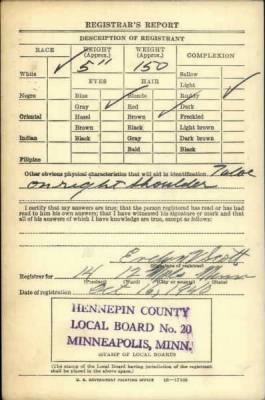 REGISTRAR'S REPORT
DESCRIPTION OF REGISTRANT
RACE HEIGHT (Approx.) WEIGHT (Approx.) COMPLEXION
5'11" 150
White ✓ Sallow
EYES HAIR Light
Negro Blue Blonde Ruddy ✓
Gray Red Dark
Oriental Hazel Brown ✓ Freckled
Brown Black Light brown
Indian Black Gray Dark brown
Bald Black
Filipino
Other obvious physical characteristics that will aid in identification
on right shoulder
I certify that my answers are true; that the person registered has read or has had
read to him his own answers; that I have witnessed his signature or mark and that
all of his answers of which I have knowledge are true, except as follows:
Evelyn Scott
(Signature of registrar)
Registrar for 14 12 Mpls Minn
(Precinct) (Ward) (City or county) (State)
Date of registration Oct 16, 1940
HENNEPIN COUNTY
LOCAL BOARD No. 20
MINNEAPOLIS, MINN.
(STAMP OF LOCAL BOARD)
(The stamp of the Local Board having jurisdiction of the registrant
shall be placed in the above space.)
U. S. GOVERNMENT PRINTING OFFICE